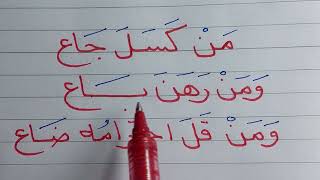 مَنْ كَسَلَ جَاع
وَمَنْ رَهَنَ بَاع
وَمَنْ قَلَ احترامُه ضَاع